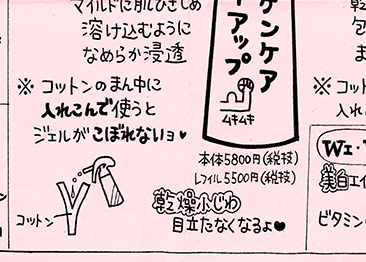 マイルドに肌ひきしめ
溶け込むように
なめらか浸透
※ コットンのまん中に
入れこんで使うと
ジェルがこぼれないョ♥
コットン
ゲンケア
イアップ
ムキムキ
本体5800円(税抜)
レフィル5500円(税抜)
乾燥小じわ
目立たなくなるよ♥
乾
包
ま
※ コット
入れ
WE・
美白エイ
ビタミン